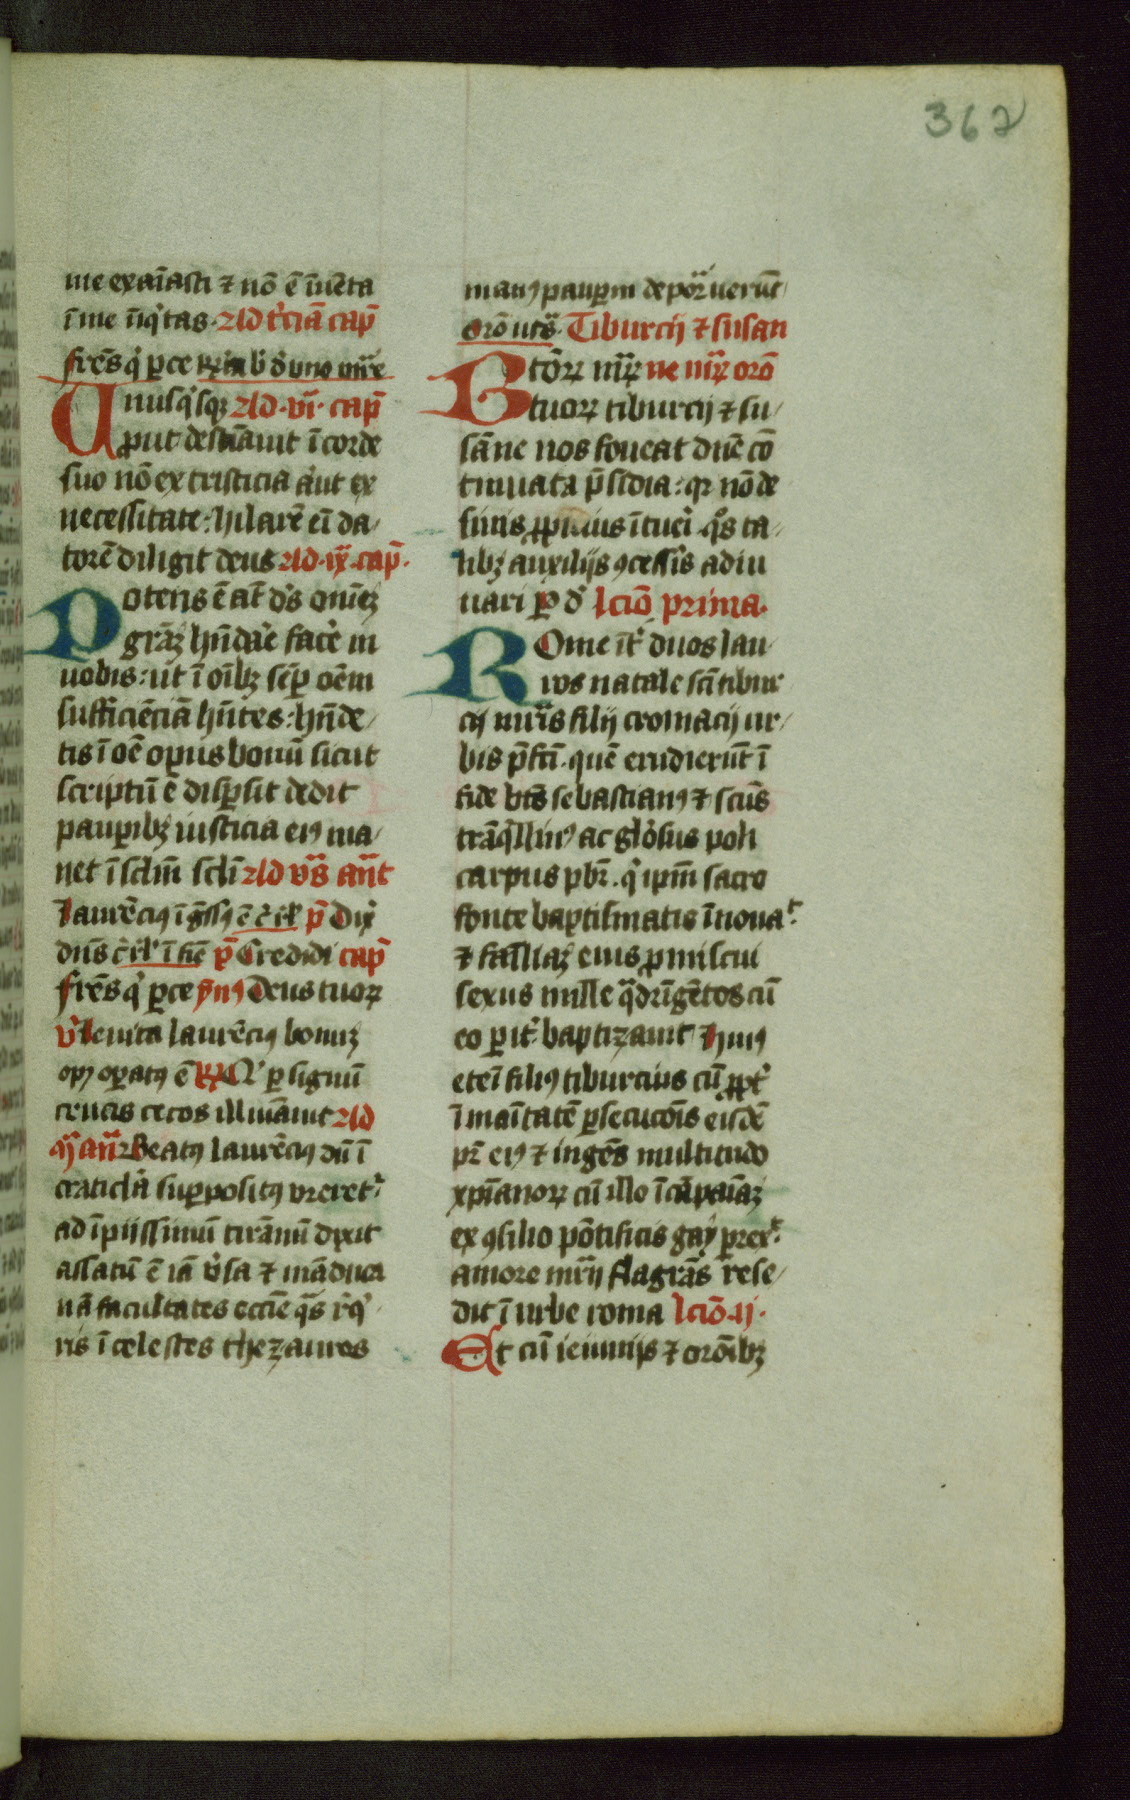 362
me exaīasti ⁊ nō ē īuēta
ī me īiq̇tas. Ad t̾ciā cap̄
fr̄es q̇ ꝑce
Unusq̇sqꝫ Ad .vi. cap̄
ꝓut destīauit ī corde
suo nō ex tristicia aut ex
necessitate: hilarē ei̅ da/
torē diligit deus Ad .ix. cap̄.
Potens ē at̄ ds̄ om̄eꝫ
grāꝫ hūdāe fac̾e in
uobis: ut ī oībꝫ sēꝑ oēm
sufficiēciā hn̄tes: hn̄de/
tis ī oē opus bonū sicut
scriptū ē disꝑsit dedit
pauꝑibꝫ iusticia eiꝰ ma/
net ī sclm̄ scli̅ Ad vs̄ℯ an̄t
Laurēciꝰ īg̅ssꝰ ē p̄ Dix̾
dn̄s p̄ Credidi cap̄
fr̄es q̇ ꝑce ẏnꝰ Deus tuoꝝ
v̾ leuita laurēciꝰ bonuꝫ
opꝰ oꝑatꝰ ē ꝑ signū
crucis cecos illūiauit Ad
Beatꝰ laurēciꝰ dū ī
craticla suꝑpositꝰ vreret᷑
ad īpiissimū tirānū dixit
assatū ē iā v̾sa ⁊ māduca
nā facultates eccīe q̄s req̇
ris ī celestes thezauros
manꝰ pauꝑm deportauerūt
orō ut sͣ. Tiburcij ⁊ susan
Btōꝝ mr̄ꝝ ne mr̄ꝝ orō
tuoꝝ tiburcij ⁊ su/
sāne nos foueat dn̄e cō
tinuata p̄sidia: qꝛ nō de
sinis ꝓpicius ītueri q̄s ta/
libꝫ auxilijs ꝯcess̾is adiu
uari ꝑ d̾ lciō prima.
Rome īt̾ duos lau
ros natale scī tibur
cij mr̄is filij cromacij ur/
bis p̄fcī. quē erudierūt ī
fide bt̄s sebastianꝰ ⁊ scūs
trāq̇llinꝰ ac glōsus poli
carpus pbr̄. q̇ ipm̄ sacro
fonte baptismatis īnouaᵗ.
⁊ familiaꝫ eius ꝓmiscui
sexus mille q̄dr̄igētos cū
eo ꝑit̾ baptizauit huiꝰ
eteī filiꝰ tiburcius cū ꝓpt̾
īmaītatē ꝑsecucōis eisdē
pr̄ eiꝰ ⁊ ingēs multitudo
xp̄ianoꝝ cū illo ī cāpaīaꝫ
ex ꝯsilio pōtificis gay ꝑrexᵗ.
amore mr̄ij flagrās rese/
dit ī urbe roma lciō .ij.
Et cū ieiunijs ⁊ orōibꝫ